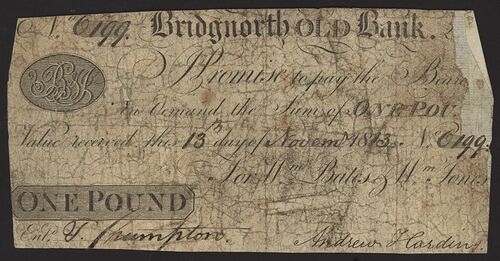 No. 6199. Bridgnorth OLD Bank.
I Promise to pay the Bearer
on Demand, the Sum of ONE POU
Value received this 13th day of Novemr 1813. No 6199.
For Wm Bates & Wm Jones
ONE POUND
Entd. Crumpton.
Andrew Harding.